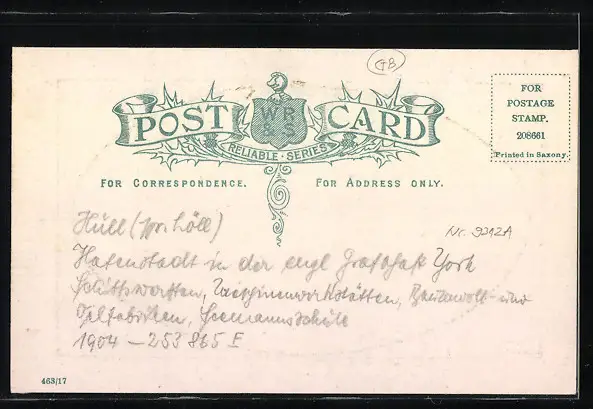 GB
POST CARD
WR
&S
RELIABLE · SERIES
FOR CORRESPONDENCE.
FOR ADDRESS ONLY.
FOR
POSTAGE
STAMP.
208661
Printed in Saxony.
Hüll (spr. höll)
Nr. 9312A
Hafenstadt in der engl Grafschaft York
Schiffswerften, Maschinenwerkstätten, Baumwoll- und
Oelfabriken, Seemannsschule
1904 – 253 865 E
463/17